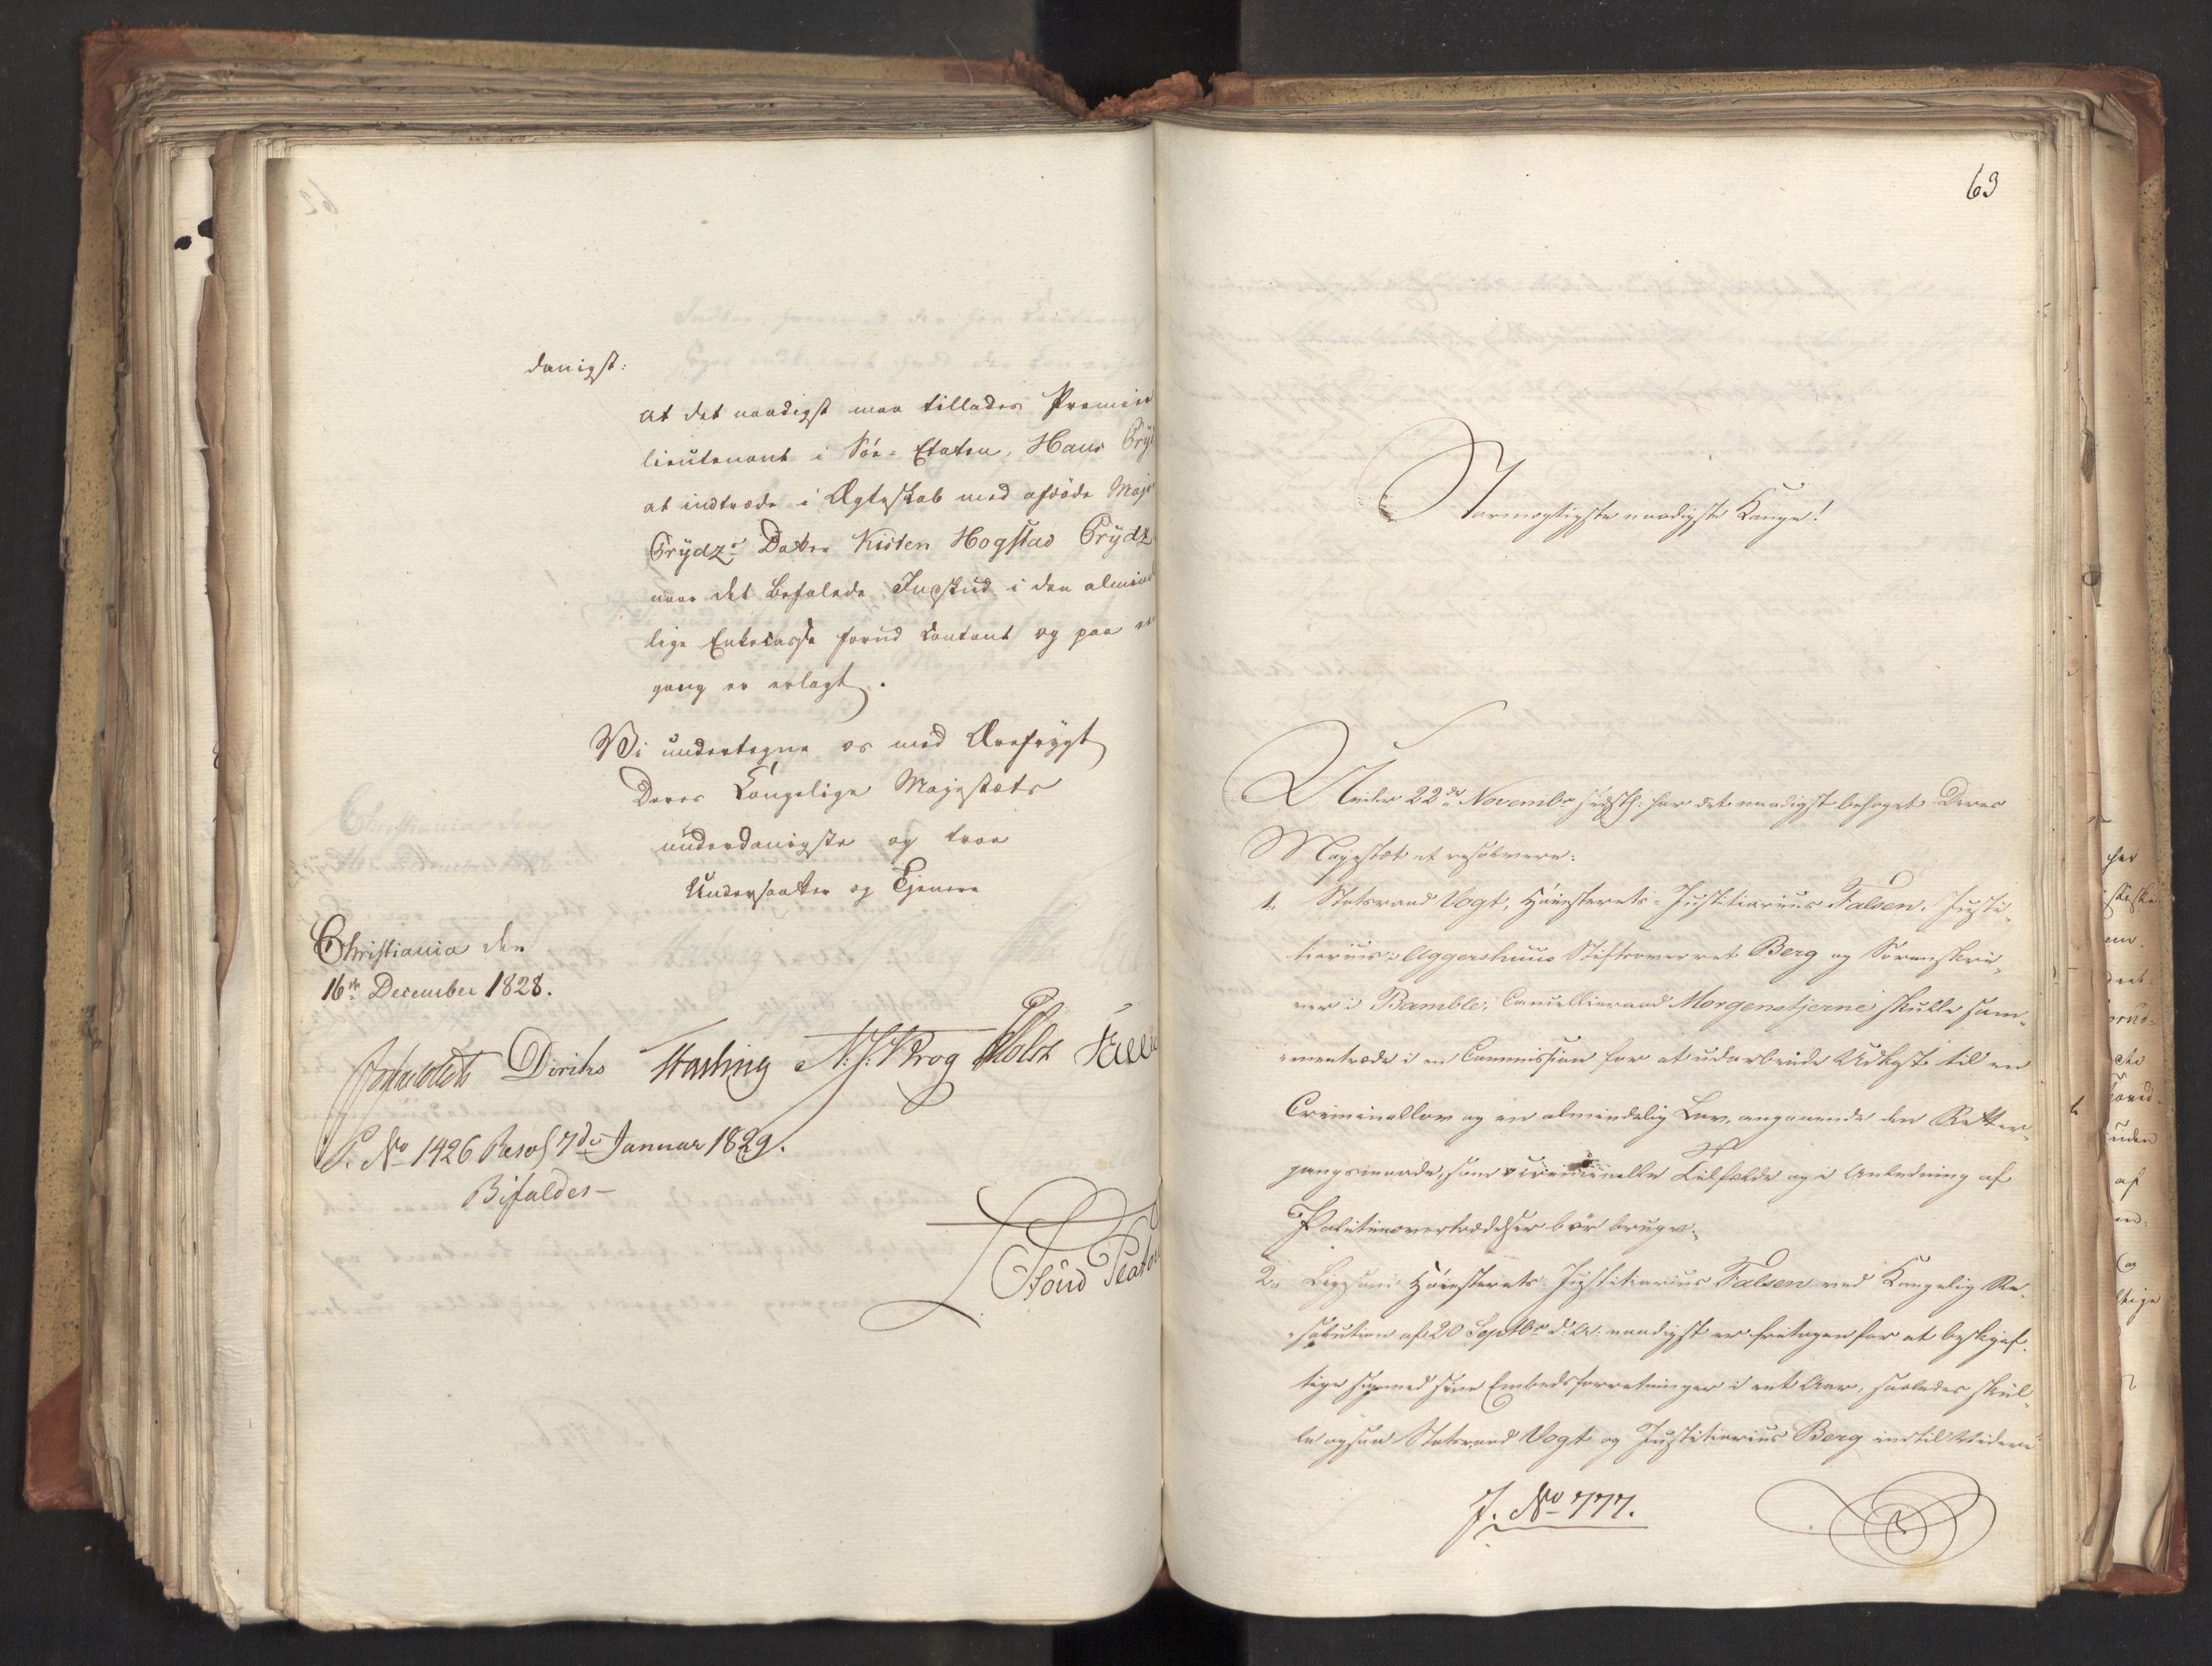 danigst:
at det naadigst maa tillades Premier
lieutenant i Søe-Etaten, Hans Gryd
at indtræde i Ægteskab med afdøde Majo
Grydz's Datter Kirsten Hogstad Grydtz
naar det befalede Indskud i den almind
lige Enkecasse forud contant og paa en
gang er erlagt.
Vi undertegne os med Ærefrygt
Deres Kongelige Majestæts
underdanigste og troe
Undersaatter og Tjenere
Christiania den
16de December 1828.
Diriks N. J. Krog Holst
S. No 1426 Resol 7de Januar 1829.
Bifaldes-
63
Stormægtigste naadigste Konge!
Under 22de Novembr sidstl: har det naadigst behaget Deres
Majestæt at resolvere:
1. Statsraad Vogt, Høiesterets-Justitiarius Falsen, Justi-
tiarius i Aggershuus Stiftsoverret Berg og Sorenskri-
ver i Bamble, Cancellieraad Morgenstjerne skulle sam-
mentræde i en Commission for at udarbeide Udkast til en
Criminallov og en almindelig Lov, angaaende den Retter-
gangsmaade, som i criminelle Tilfælde og i Anledning af
Politieovertrædelser bør bruges.
2. Ligesom Høiesterets Justitiarius Falsen ved Kongelig Re-
solution af 20 Septbr d: A: naadigst er fritagen for at beskjæf-
tige sig med sine Embedsforretninger i eet Aar, saaledes skul-
le ogsaa Statsraad Vogt og Justitiarius Berg indtil Videre
J. No 777.